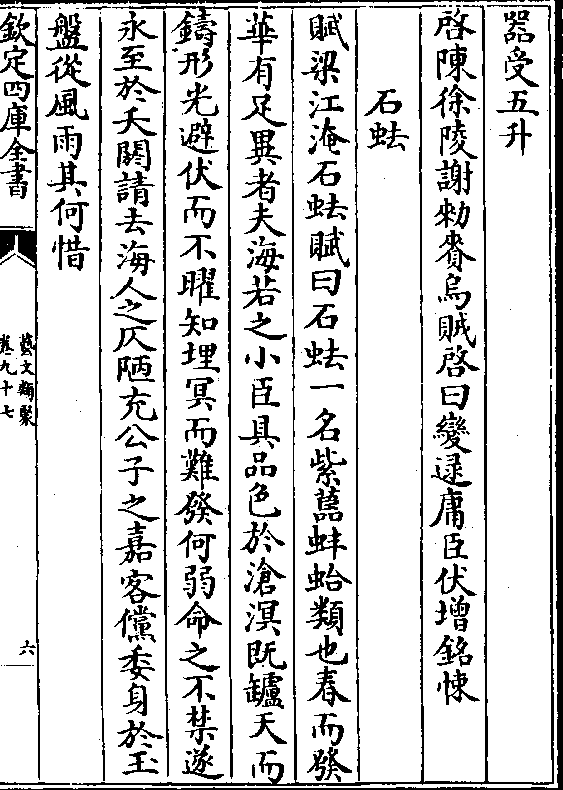 器受五升
啓陳徐陵謝勑賚烏賊啓曰變逮庸臣伏增銘悚
石蚨
賦梁江淹石蚨賦曰石蚨一名紫蘦蚌蛤類也春而發
華有足異者夫海若之小臣具品色於滄溟既鑪天而
鑄形光避伏而不曜知埋冥而難發何弱命之不禁遂
永至於夭閼請去海人之仄陋充公子之嘉客儻委身於玉
盤從風雨其何惜
欽定四庫全書
藝文類聚
卷九十七
六